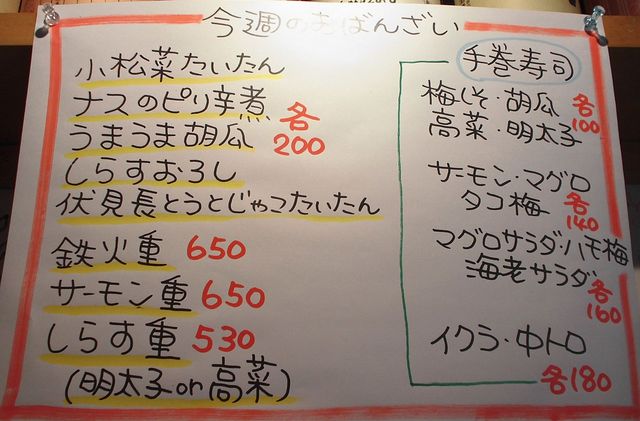 今週のおばんざい
小松菜たいたん
ナスのピリ辛煮
うまうま胡瓜
各
200
しらすおろし
伏見長とうとじゃこたいたん
鉄火重 650
サーモン重 650
しらす重 530
(明太子or高菜)
手巻寿司
梅しそ・胡瓜
高菜・明太子
各
100
サーモン・マグロ
タコ梅
各
140
マグロサラダ・ハモ梅
海老サラダ
各
160
イクラ・中トロ
各180